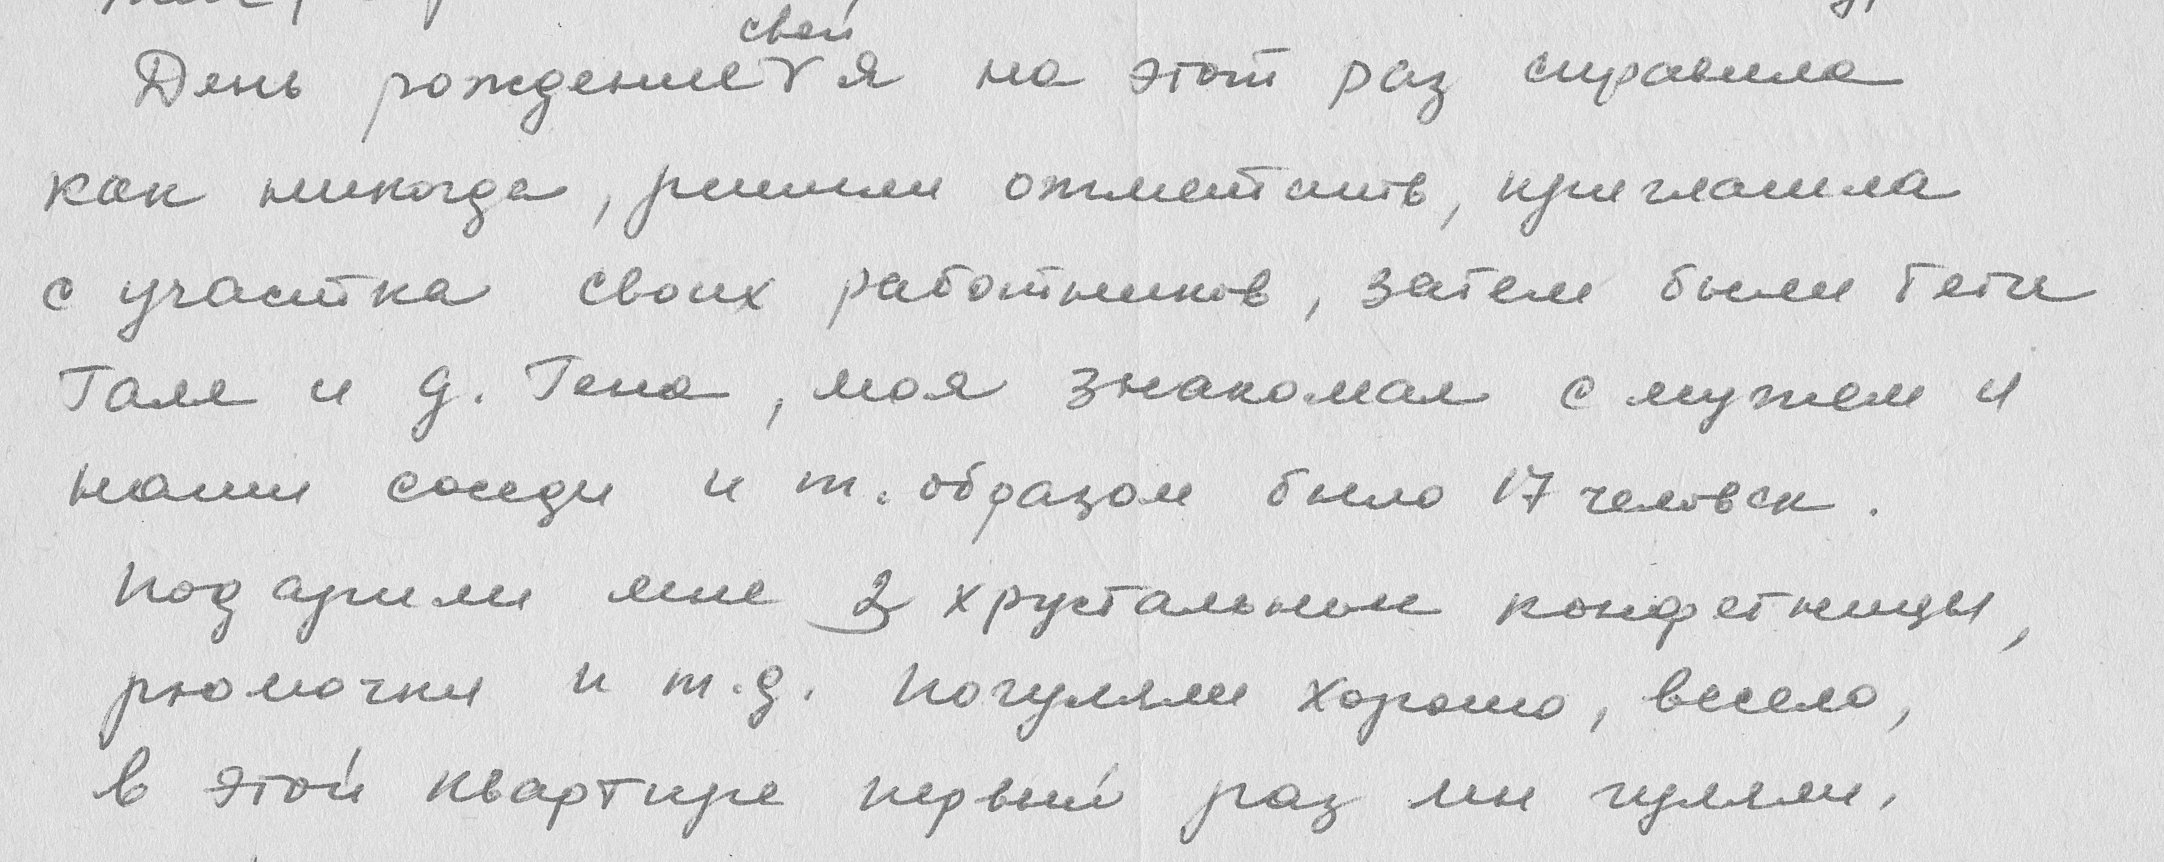 День рождение свой я на этот раз справила
как никогда, решили отметить, пригласила
с участка своих работников, затем были тетя
Галя и д. Гена, моя знакомая с мужем и
наши соседи и т. образом было 17 человек.
Подарили мне 2 хрустальные конфетницы,
рюмочки и т.д. Погуляли хорошо, весело,
в этой квартире первый раз мы гуляли.